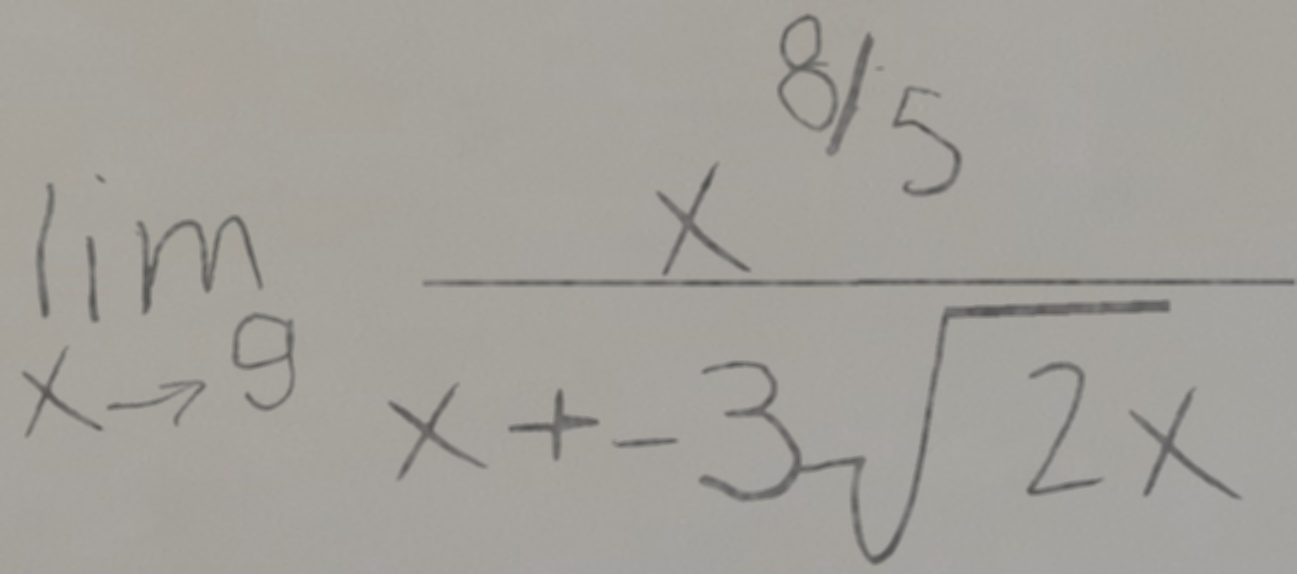 \lim_{x \to 9} \frac{x^{8/5}}{x + -3\sqrt{2x}}